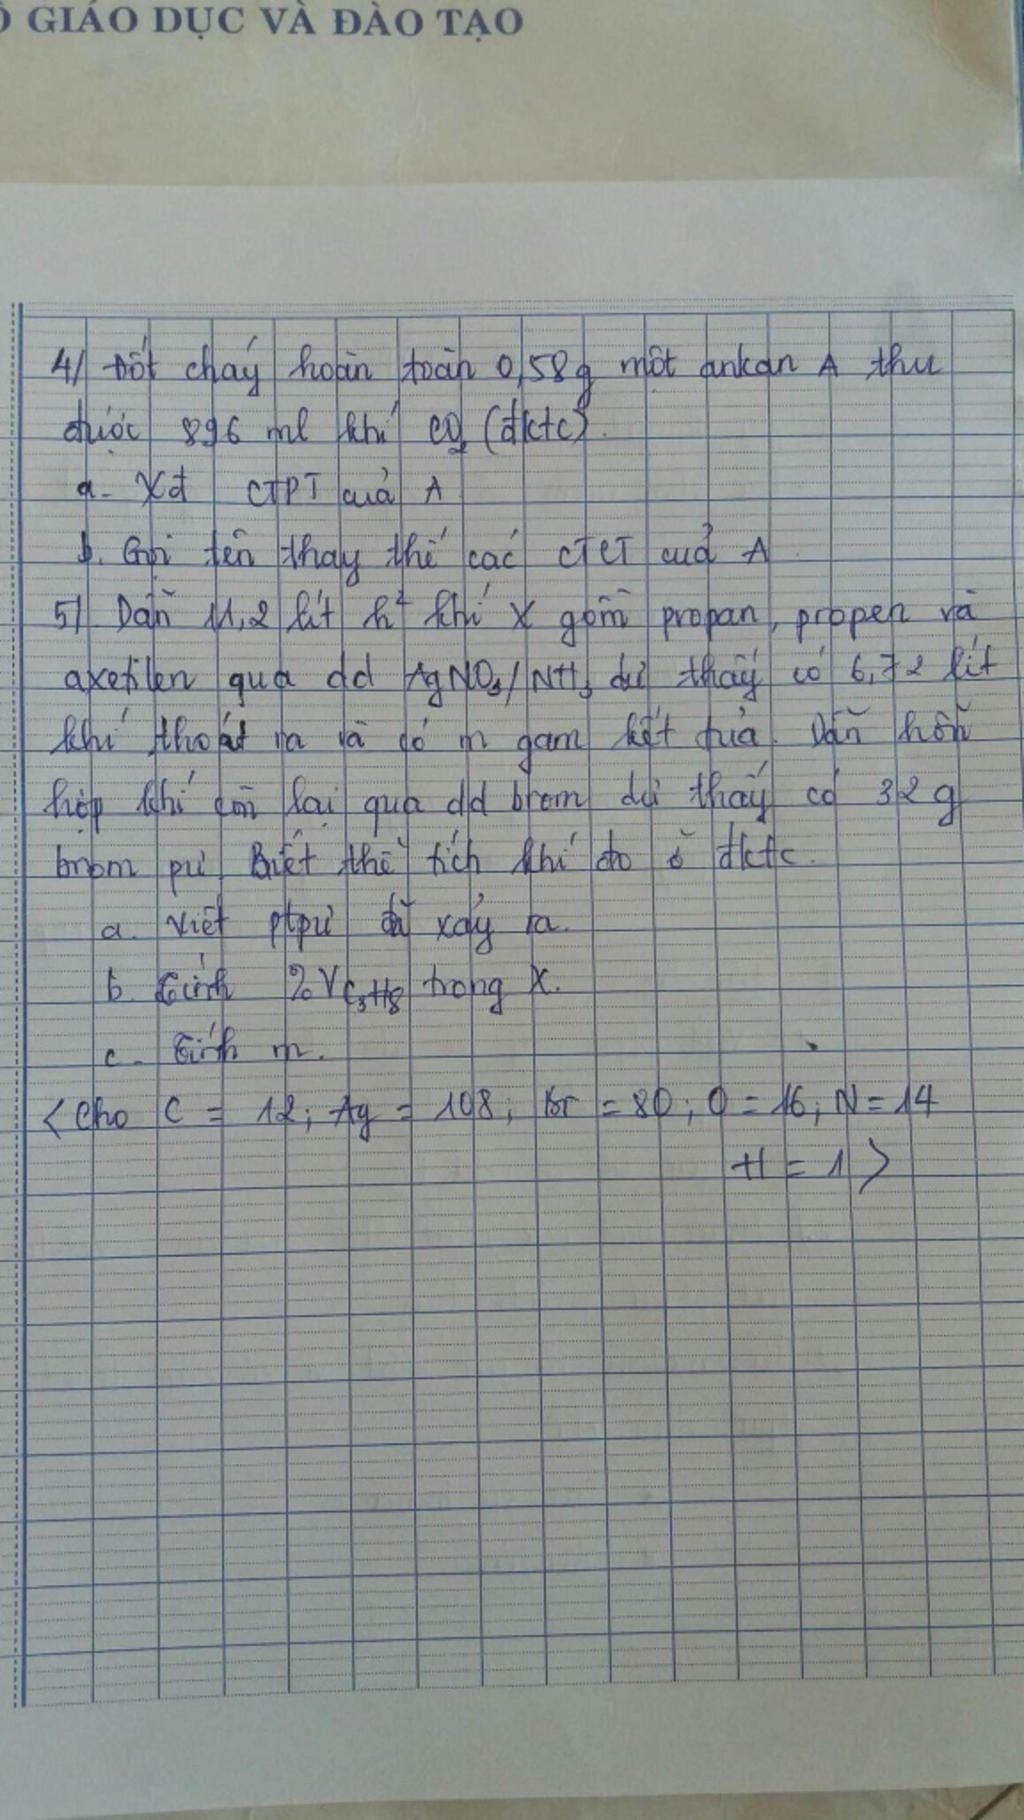 GIÁO DỤC VÀ ĐÀO TẠO
4/ Đốt cháy hoàn toàn 0,58g một ankan A thu
được 896 ml khí CO2 (đktc).
a. Xđ CTPT của A
b. Gọi tên thay thế các CTCT của A
5/ Dẫn 11,2 lít h² khí X gồm propan, propen và
axetilen qua dd AgNO3/NH3 dư thấy có 6,72 lít
khí thoát ra và có m gam kết tủa. Dẫn hỗn
hợp khí còn lại qua dd brom dư thấy có 32g
brom pứ. Biết thể tích khí đo ở đktc.
a. Viết ptpứ đã xảy ra.
b. Tính %VC3H8 trong X.
c. Tính m.
<Cho C = 12; Ag = 108; Br = 80; O = 16; N = 14
H = 1>